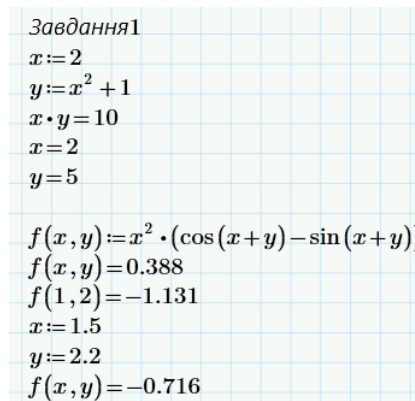 Завдання1
x:=2
y:=x²+1
x·y=10
x=2
y=5
f(x,y):=x²·(cos(x+y)−sin(x+y))
f(x,y)=0.388
f(1,2)=−1.131
x:=1.5
y:=2.2
f(x,y)=−0.716